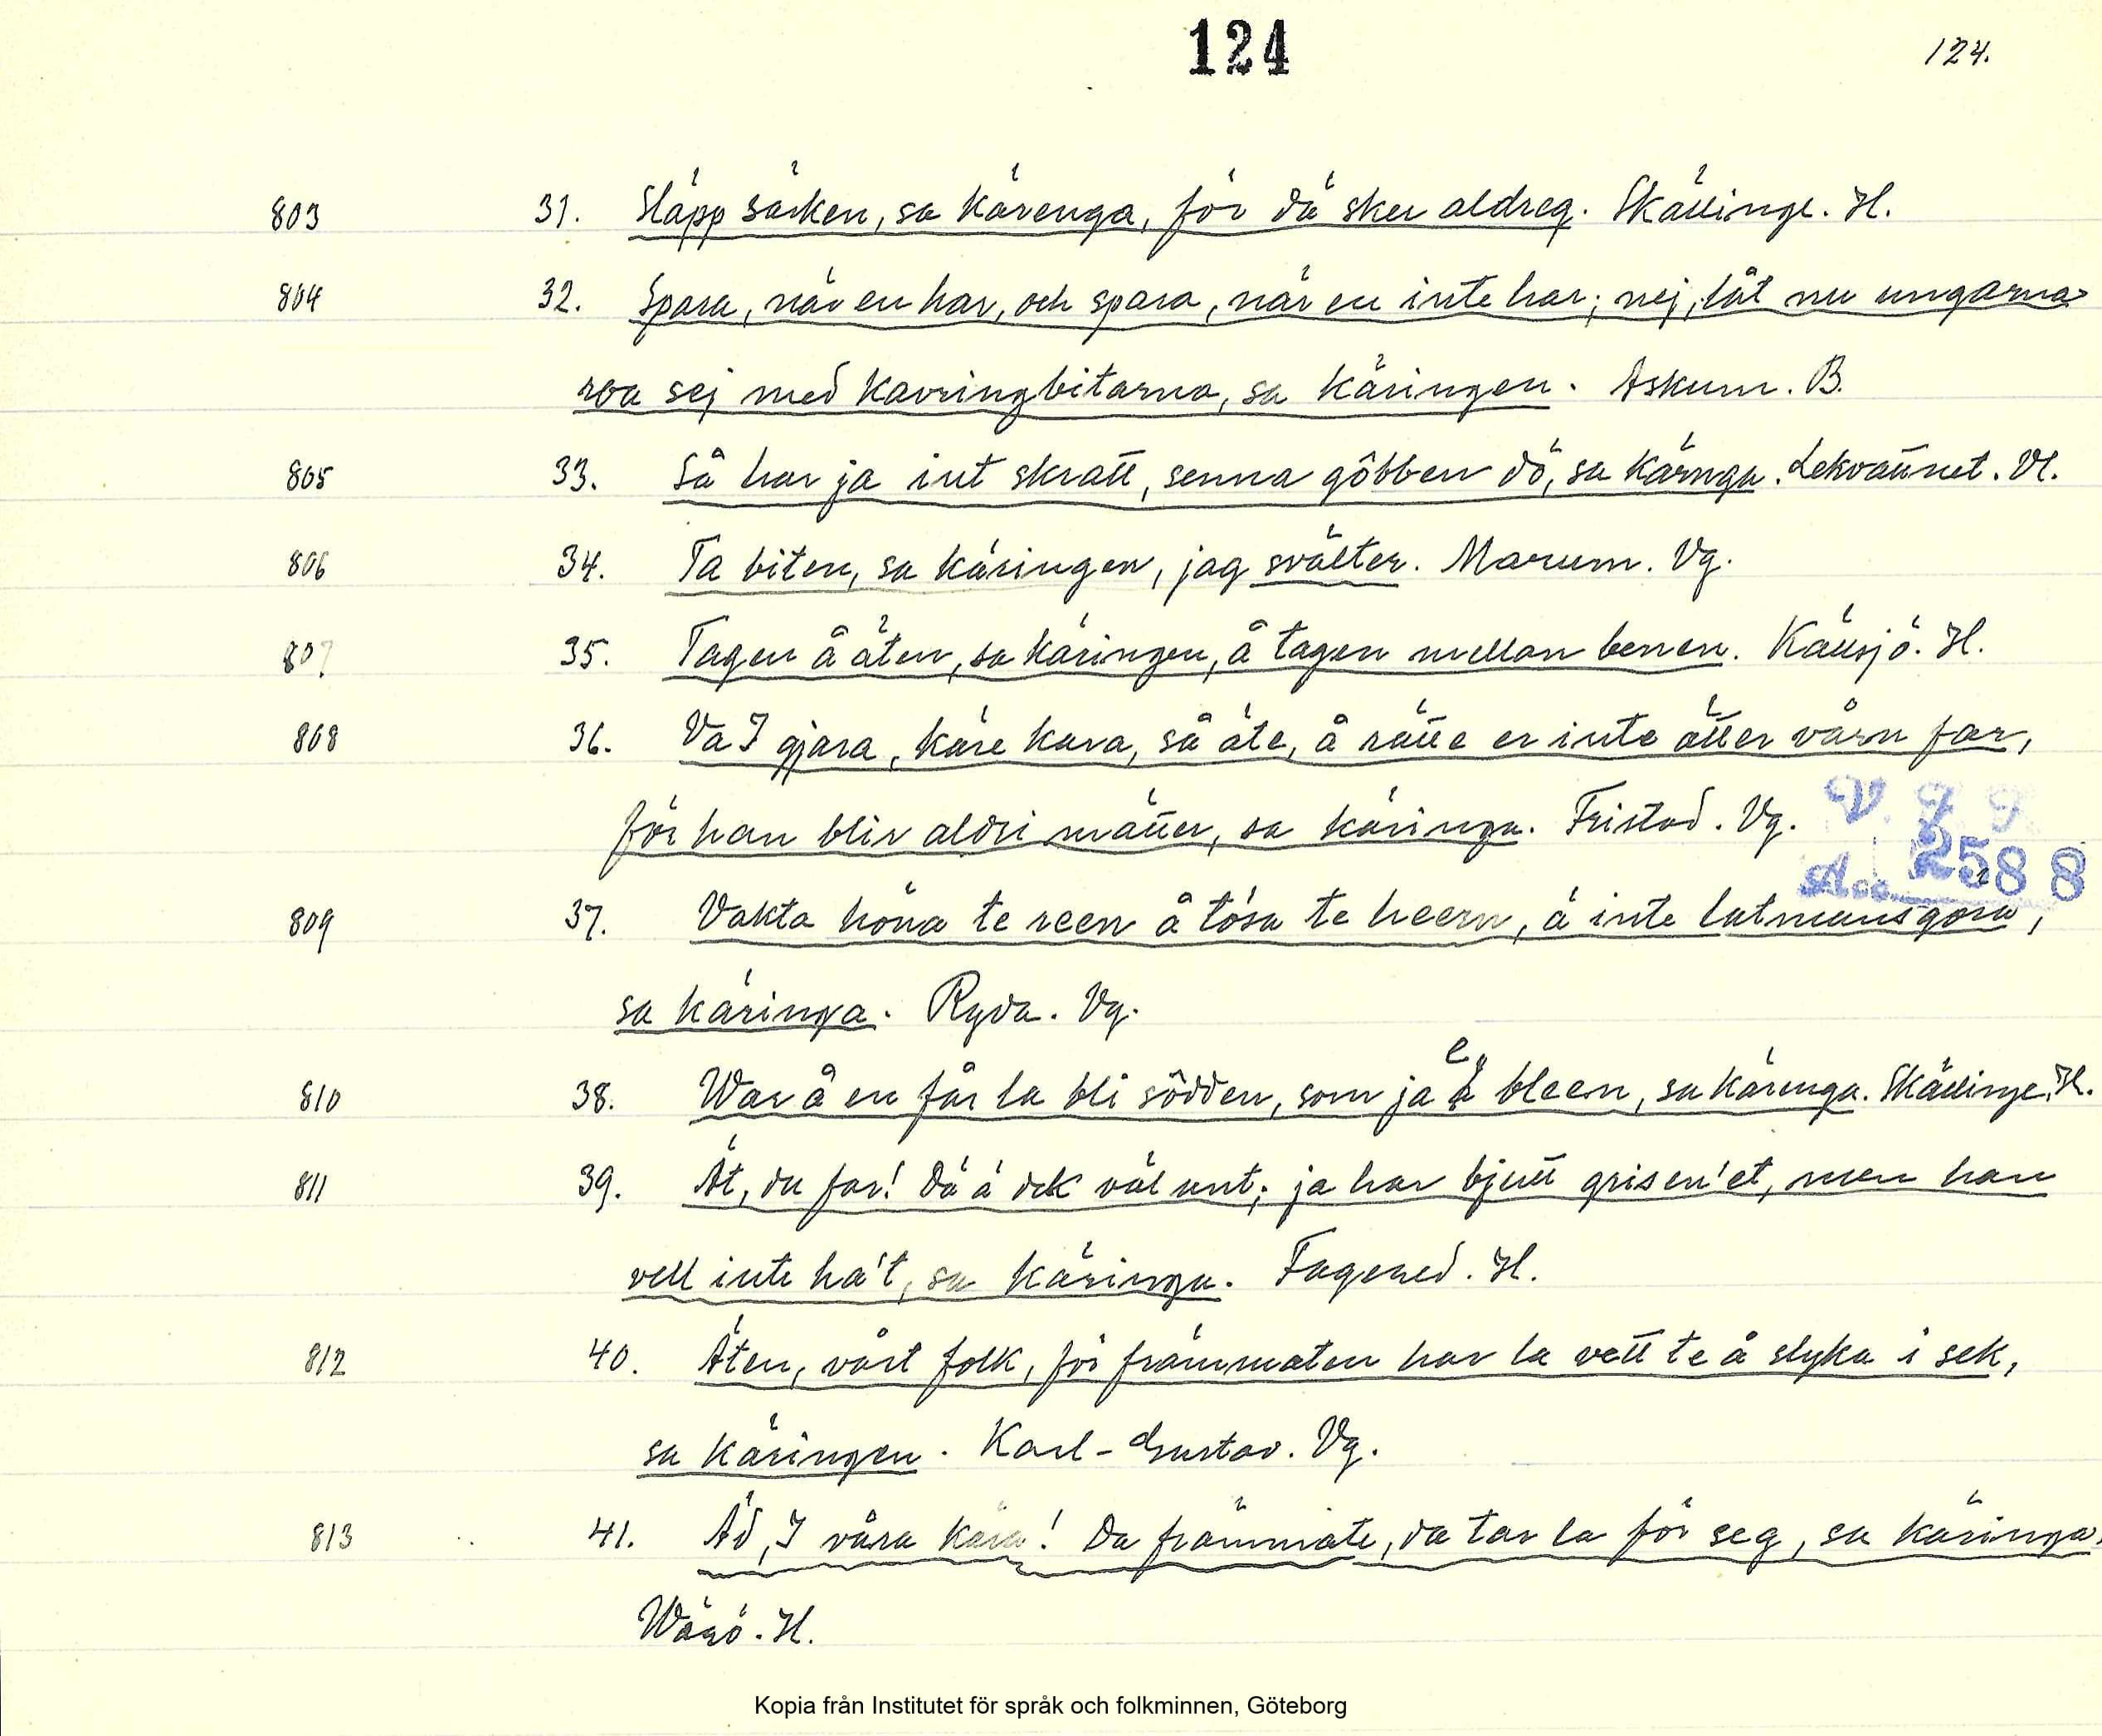 124
124.
803 31. Släpp säcken, sa kärenga, för dä sker aldreg. Skällinge. H.
804 32. Spara, när en har, och spara, när en inte har; nej, låt nu ungarna
roa sej med kavringbitarna, sa käringen. Askum. B.
805 33. Så har ja int skratt, senna göbben dö, sa kärnga. Lekvattnet. Vl.
806 34. Ta biten, sa käringen, jag svälter. Marum. Vg.
807 35. Tagen å äten, sa käringen, å tagen mellan benen. Källsjö. H.
808 36. Va I gjara, käre kara, så äte, å rätte er inte ätter vårn far,
för han blir aldri mätter, sa käringa. Fristad. Vg.
V G F
Acc. 2588
809 37. Vakta höna te reen å tösa te heern, ä inte latmansgöra,
sa käringa. Ryda. Vg.
810 38. War å en får la bli södden, som ja e bleen, sa kärenga. Skällinge. H.
811 39. Ät, du far! Dä ä dek väl unt; ja har bjutt grisen'et, men han
vell inte ha't, sa käringa. Fagered. H.
812 40. Äten, vårt folk, för främmaten har la vett te å slyka i sek,
sa käringen. Karl-Gustav. Vg.
813 41. Äd, I våra kära! Da främmate, da tar la för seg, sa käringa.
Wärö. H.
Kopia från Institutet för språk och folkminnen, Göteborg